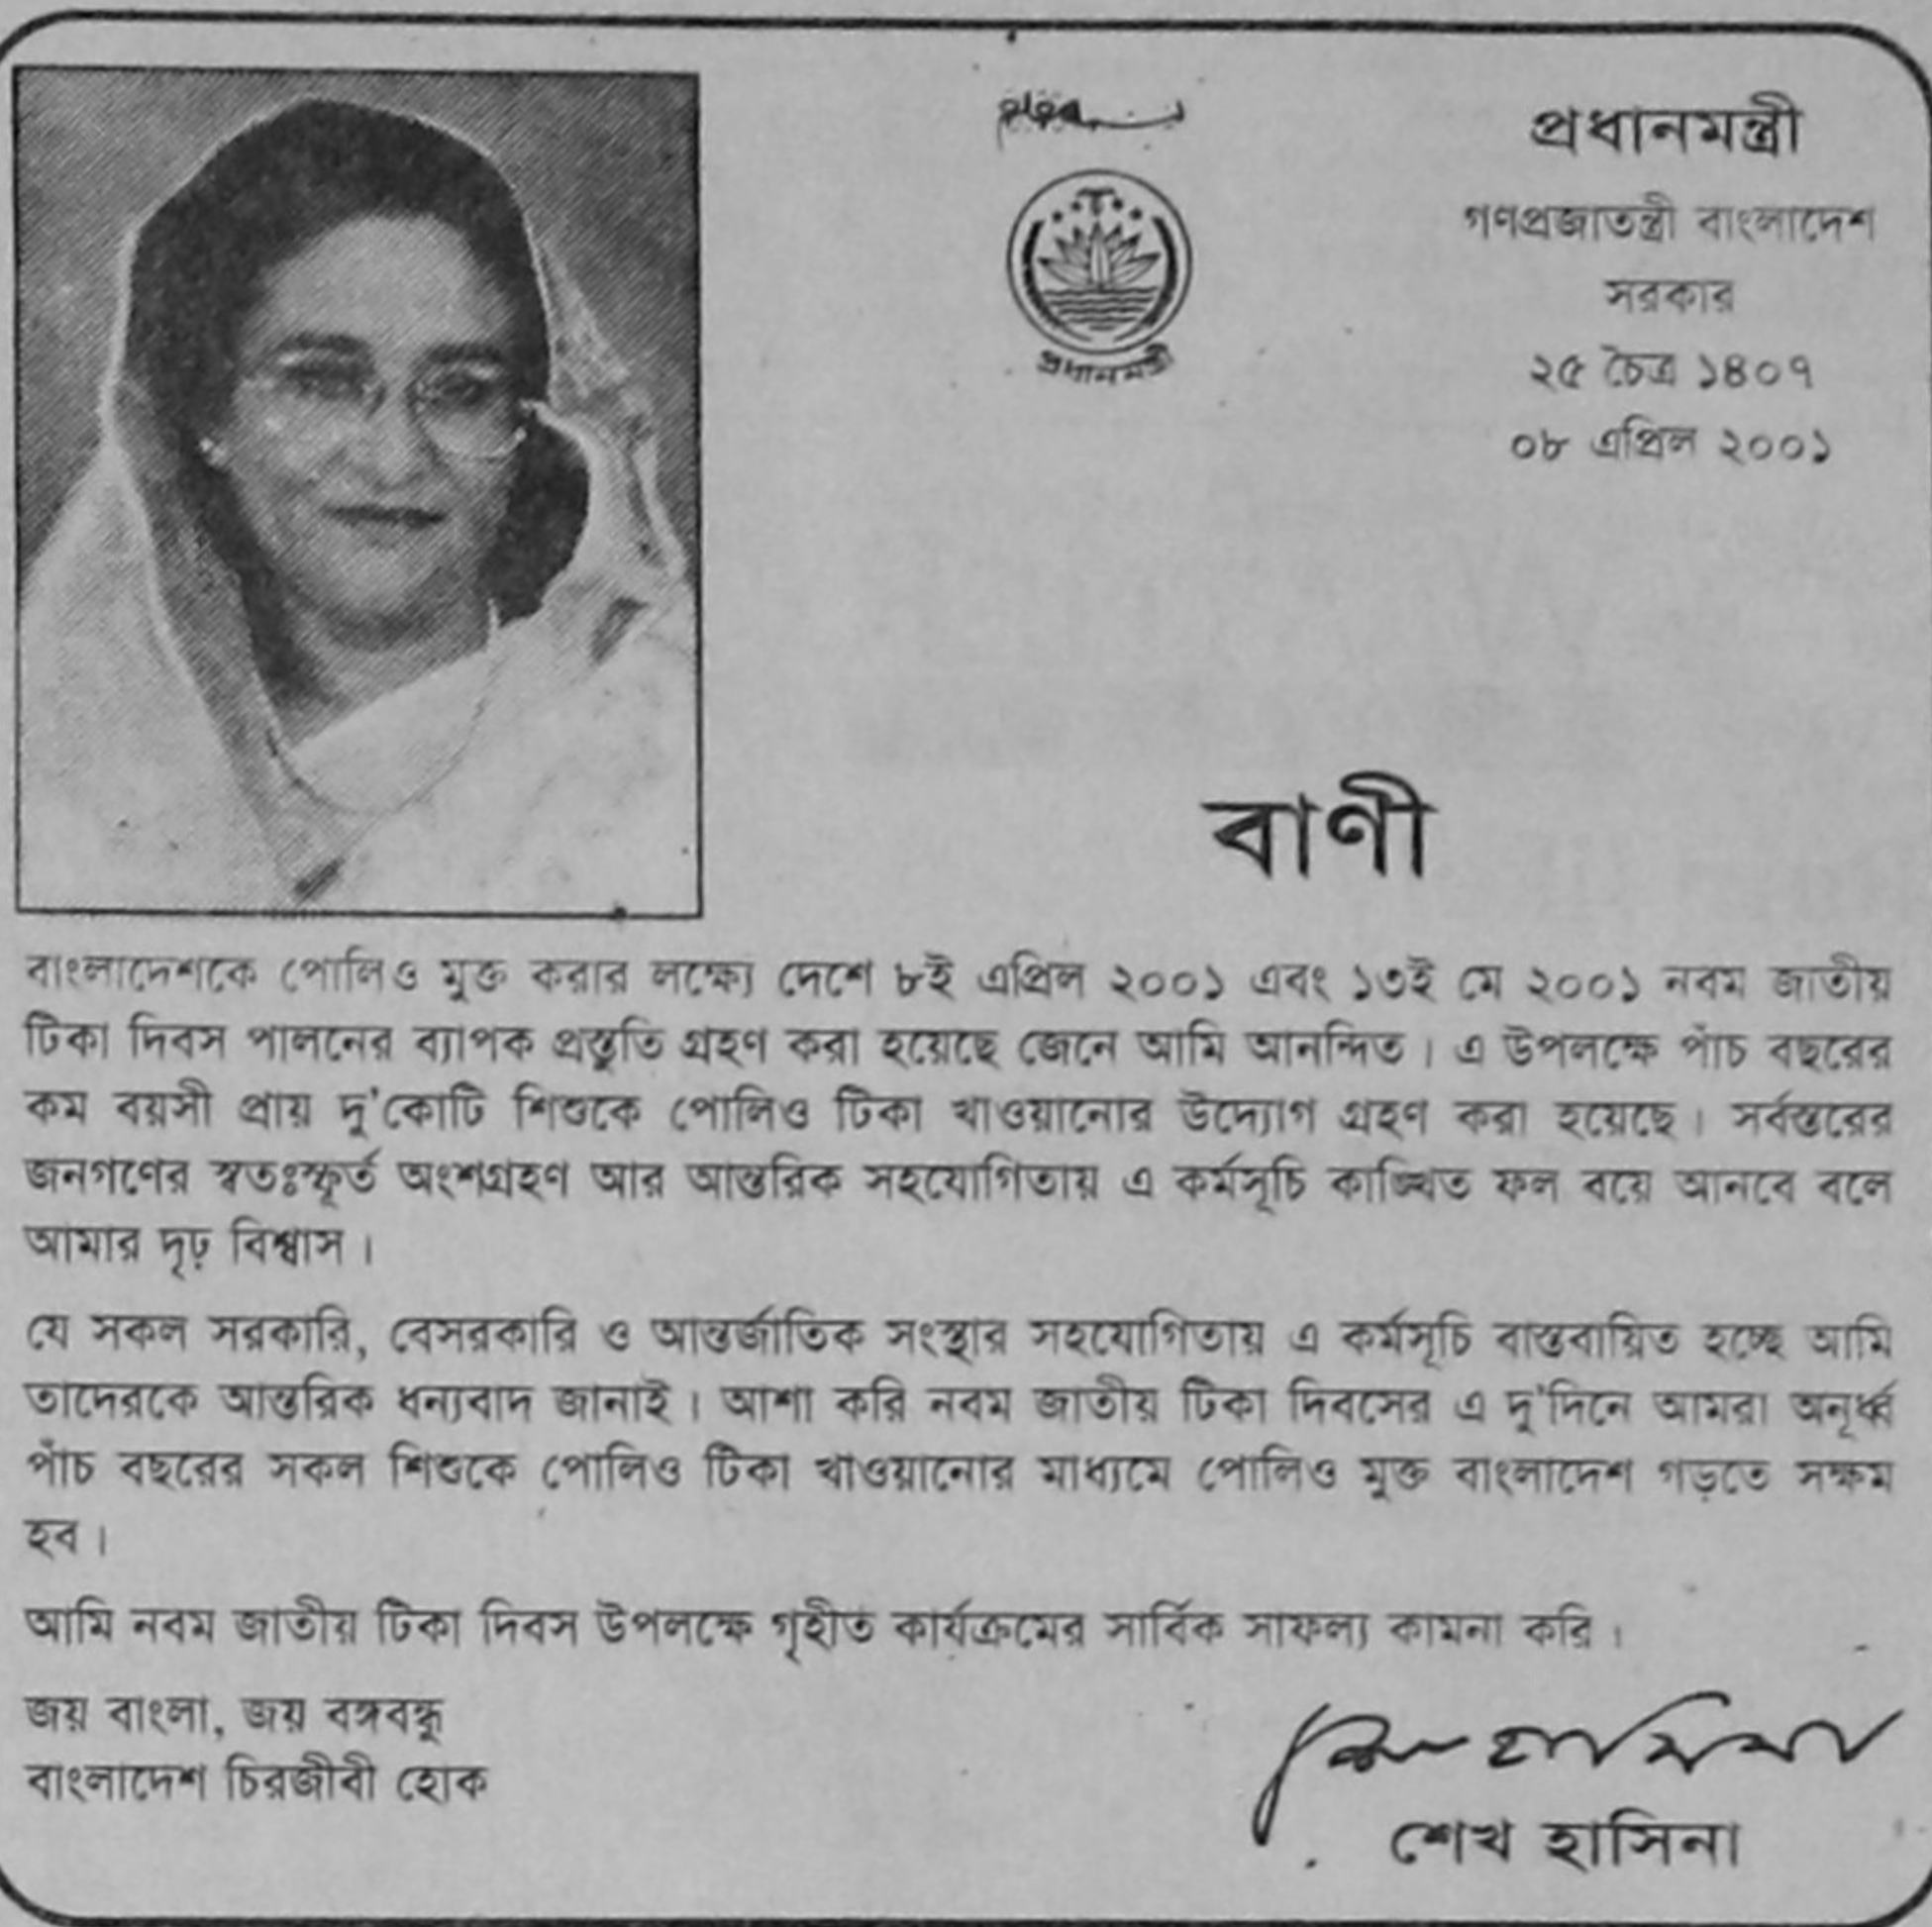 প্রধানমন্ত্রী
গণপ্রজাতন্ত্রী বাংলাদেশ
সরকার
২৫ চৈত্র ১৪০৭
০৮ এপ্রিল ২০০১
প্রধানমন্ত্রী
বাণী
বাংলাদেশকে পোলিও মুক্ত করার লক্ষ্যে দেশে ৮ই এপ্রিল ২০০১ এবং ১৩ই মে ২০০১ নবম জাতীয়
টিকা দিবস পালনের ব্যাপক প্রস্তুতি গ্রহণ করা হয়েছে জেনে আমি আনন্দিত। এ উপলক্ষে পাঁচ বছরের
কম বয়সী প্রায় দু'কোটি শিশুকে পোলিও টিকা খাওয়ানোর উদ্যোগ গ্রহণ করা হয়েছে। সর্বস্তরের
জনগণের স্বতঃস্ফূর্ত অংশগ্রহণ আর আন্তরিক সহযোগিতায় এ কর্মসূচি কাঙ্খিত ফল বয়ে আনবে বলে
আমার দৃঢ় বিশ্বাস।
যে সকল সরকারি, বেসরকারি ও আন্তর্জাতিক সংস্থার সহযোগিতায় এ কর্মসূচি বাস্তবায়িত হচ্ছে আমি
তাদেরকে আন্তরিক ধন্যবাদ জানাই। আশা করি নবম জাতীয় টিকা দিবসের এ দু'দিনে আমরা অনূর্ধ্ব
পাঁচ বছরের সকল শিশুকে পোলিও টিকা খাওয়ানোর মাধ্যমে পোলিও মুক্ত বাংলাদেশ গড়তে সক্ষম
হব।
আমি নবম জাতীয় টিকা দিবস উপলক্ষে গৃহীত কার্যক্রমের সার্বিক সাফল্য কামনা করি।
জয় বাংলা, জয় বঙ্গবন্ধু
বাংলাদেশ চিরজীবী হোক
শেখ হাসিনা